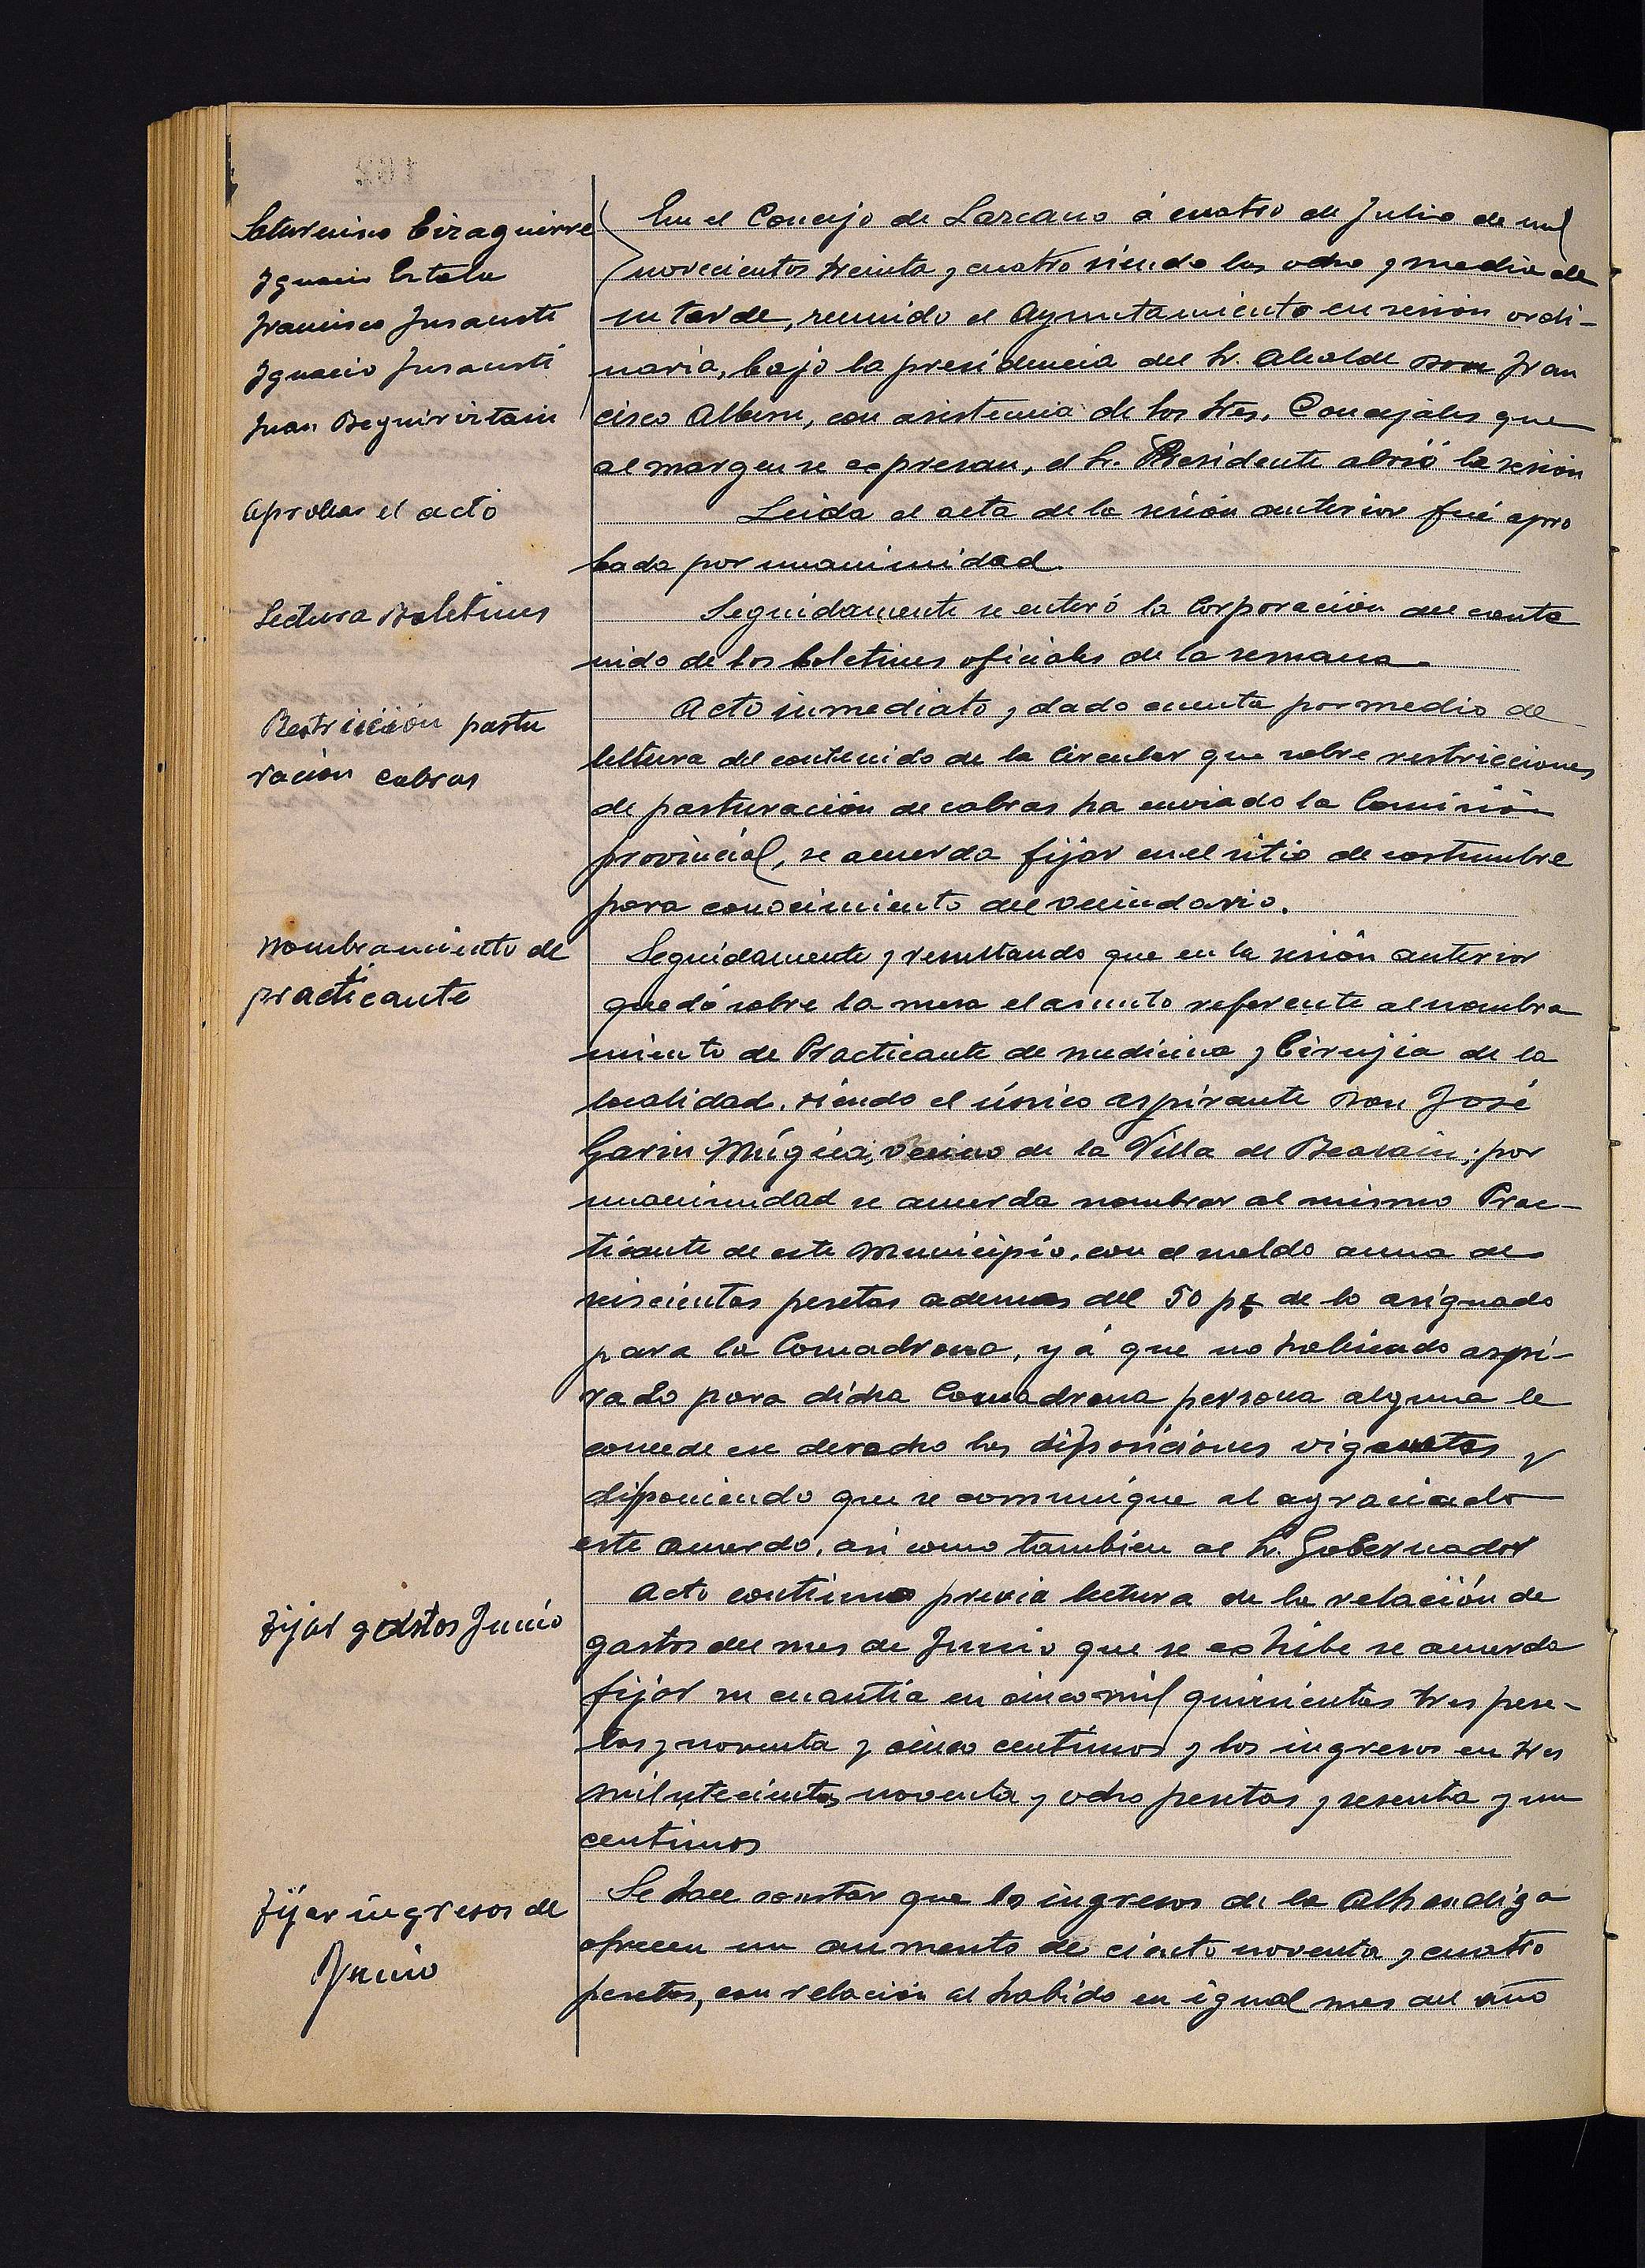 Saturnino Eizaguirre
Ignacio Estala
Francisco Insausti
Ignacio Insausti
Juan Beguiristain
En el Concejo de Lazcano á cuatro de Julio de mil
novecientos treinta y cuatro siendo las ocho y media de
su tarde, reunido el Ayuntamiento en sesion ordi-
naria, bajo la presidencia del Sr. Alcalde Don Fran
cisco Alberu, con asistencia de los Sres. Concejales que
al margen se expresan, el Sr. Presidente abrió la sesion
Aprobar el acto
Leida el acta de la sesión anterior fué apro
bada por unanimidad.
Lectura Boletines
Seguidamente se enteró la Corporación del conte
nido de los boletines oficiales de la semana.
Restricción pastu
ración cabras
Acto inmediato y dado cuenta por medio de
lectura del contenido de la Circular que sobre restricciones
de pasturación de cabras ha enviado la Comisión
provincial, se acuerda fijar en el sitio de costumbre
para conocimiento del vecindario.
Nombramiento de
practicante
Seguidamente y resultando que en la sesión anterior
quedó sobre la mesa el asunto referente al nombra
miento de Practicante de medicina y Cirujia de la
localidad, siendo el único aspirante Don José
Garin Múgica, vecino de la Villa de Beasain; por
unanimidad se acuerda nombrar al mismo Prac-
ticante de este Municipio, con el sueldo anua de
seiscientas pesetas ademas del 50 p% de lo asignado
para la Comadrona, y á que no habiendo aspi-
rado para dicha Comadrona persona alguna le
concede ese derecho las disposiciones vigentes y
disponiendo que se comunique al agraciado
este acuerdo, asi como tambien al Sr. Gobernador
Fijar gastos Junio
Acto continuo previa lectura de la relación de
gastos del mes de Junio que se exhibe se acuerda
fijar su cuantia en cinco mil quinientas tres pese-
tas y noventa y cinco centimos y los ingresos en tres
mil setecientas noventa y ocho pesetas y sesenta y un
centimos
Fijar ingresos de
Junio
Se hace constar que los ingresos de la Alhondiga
ofrecen un aumento de ciento noventa y cuatro
pesetas, con relación al habido en igual mes del año